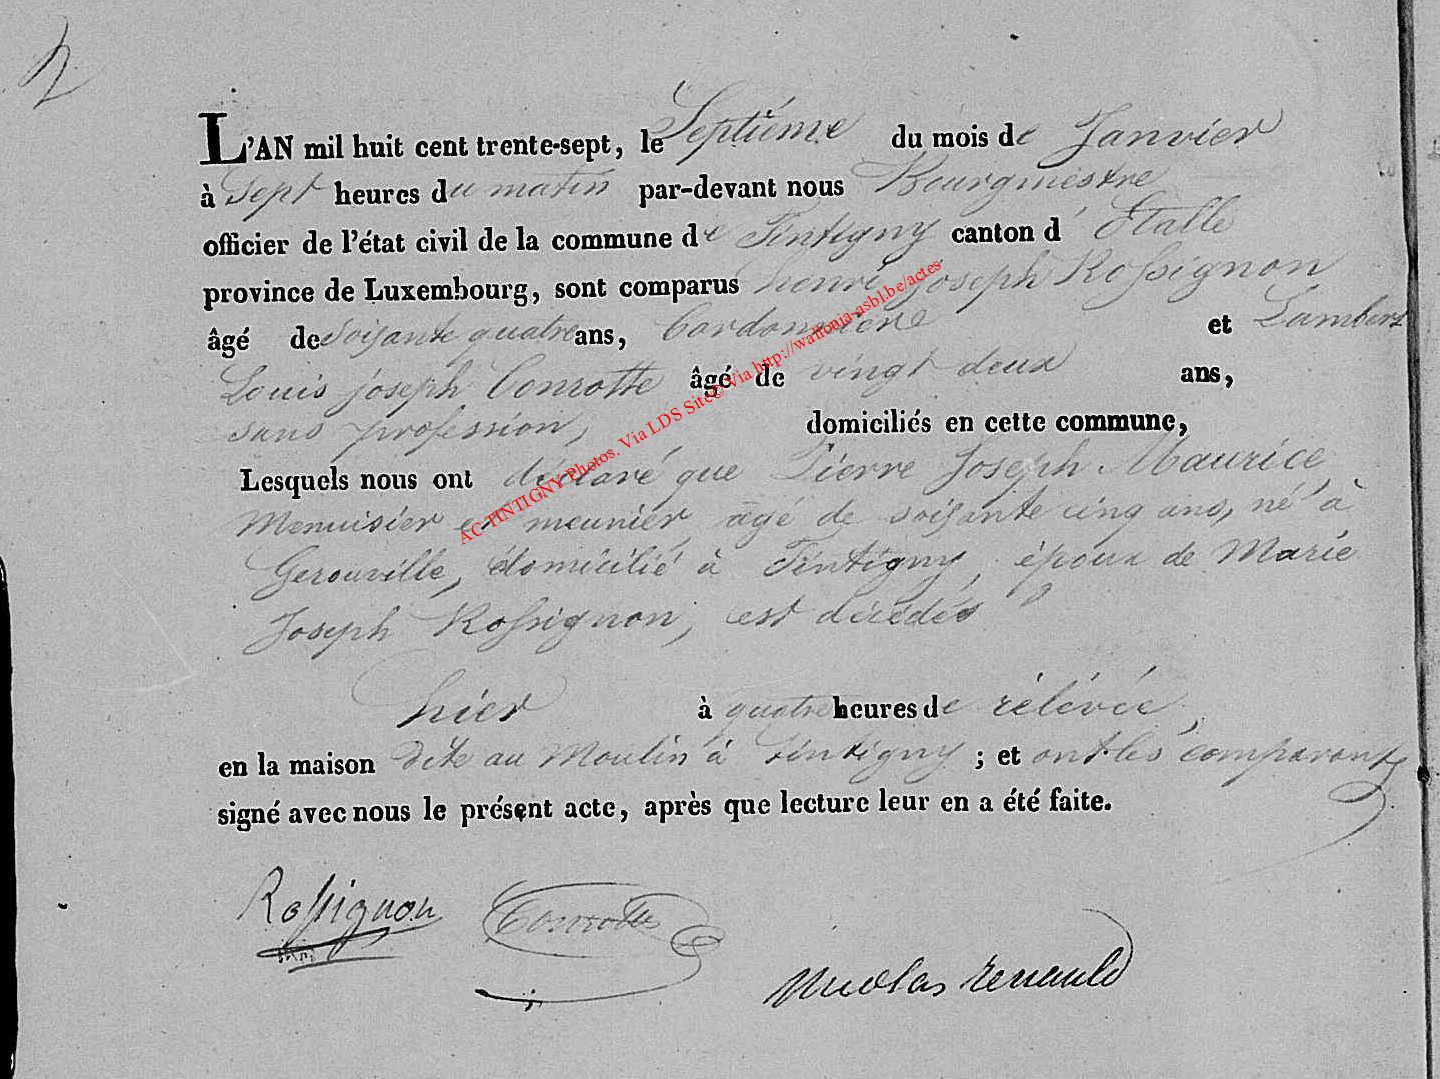 2
L'AN mil huit cent trente-sept, le Septième du mois de Janvier
à Sept heures du matin par-devant nous Bourgmestre
officier de l'état civil de la commune de Tintigny canton d'Etalle
province de Luxembourg, sont comparus henri joseph Rossignon
âgé de soisante quatre ans, Cordonnier et Lambert
Louis joseph Conrotte âgé de vingt deux ans,
sans profession, domiciliés en cette commune,
Lesquels nous ont déclaré que Pierre Joseph Maurice
Menuisier et meunier, âgé de soisante cinq ans, né à
Gerouville, domicilié à Tintigny, époux de Marie
Joseph Rossignon, est décédé
hier à quatre heures de rélévée,
en la maison dite au Moulin à Tintigny ; et ont les comparants
signé avec nous le présent acte, après que lecture leur en a été faite.
Rossignon Conrotte
Nicolas Renauld
AC TINTIGNY Photos. Via LDS Site© Via http://wallonia-asbl.be/actes